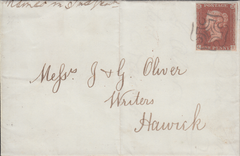 Messrs J & G Oliver
Writers
Hawick